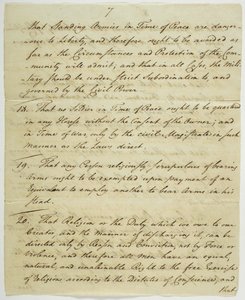 7
that Standing Armies in Time of Peace are dangerous
to Liberty, and therefore ought to be avoided as
far as the Circumstances and Protection of the Community
will admit; and that in all Cases, the Military
should be under strict Subordination to, and
governed by the Civil Power
18. That no Soldier in Time of Peace ought to be quartered
in any House without the Consent of the Owner; and
in Time of War, only by the civil Magistrate in such
Manner as the Laws direct.
19. That any Person religiously scrupulous of bearing
Arms ought to be exempted upon payment of an
Equivalent to employ another to bear Arms in his
stead.
20. That Religion or the Duty which we owe to our
Creator and the Manner of discharging it, can be
directed only by Reason and Conviction, not by Force or
Violence, and therefore all Men have an equal,
natural, and unalienable Right to the free Exercise
of Religion according to the Dictates of Conscience, and
that